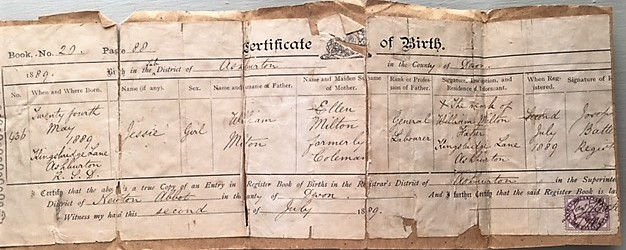 Book. No. 20. Page 88
Certificate of Birth.
1889. Birth in the Sub District of Ashburton in the County of Devon
No. When and Where Born. Name (if any). Sex. Name and Surname of Father. Name and Maiden Surname of Mother. Rank or Profession of Father. Signature, Description, and Residence of Informant. When Registered. Signature of R
436 Twenty fourth May 1889 Kingsbridge Lane Ashburton R.S.D. Jessie Girl William Milton Ellen Milton formerly Coleman General Labourer X The mark of William Milton Father Kingsbridge Lane Ashburton Second July 1889
I Certify that the above is a true Copy of an Entry in Register Book of Births in the Registrar's District of Ashburton in the Superinte
District of Newton Abbot in the County of Devon And I further Certify that the said Register Book is la
Witness my hand this second of July 1889.